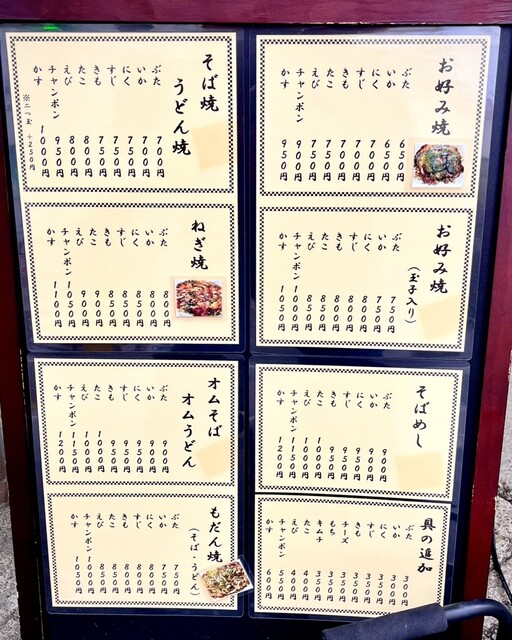 お好み焼
ぶた 650円
いか 650円
にく 700円
すじ 700円
きも 700円
たこ 750円
えび 750円
チャンポン 900円
かす 950円
そば焼
うどん焼
ぶた 700円
いか 700円
にく 750円
すじ 750円
きも 750円
たこ 800円
えび 800円
チャンポン 950円
かす 1000円
※二つ玉 +250円
お好み焼
(玉子入り)
ぶた 750円
いか 750円
にく 800円
すじ 800円
きも 800円
たこ 850円
えび 850円
チャンポン 1000円
かす 1050円
ねぎ焼
ぶた 800円
いか 800円
にく 850円
すじ 850円
きも 850円
たこ 900円
えび 900円
チャンポン 1050円
かす 1100円
そばめし
ぶた 900円
いか 900円
にく 950円
すじ 950円
きも 950円
たこ 1000円
えび 1000円
チャンポン 1150円
かす 1200円
オムそば
オムうどん
ぶた 900円
いか 900円
にく 950円
すじ 950円
きも 950円
たこ 1000円
えび 1000円
チャンポン 1150円
かす 1200円
具の追加
ぶた 300円
いか 300円
にく 350円
すじ 350円
きも 350円
チーズ 350円
もち 350円
キムチ 350円
たこ 400円
えび 400円
チャンポン 550円
かす 600円
もだん焼
(そば・うどん)
ぶた 750円
いか 750円
にく 800円
すじ 800円
きも 800円
たこ 850円
えび 850円
チャンポン 1000円
かす 1050円